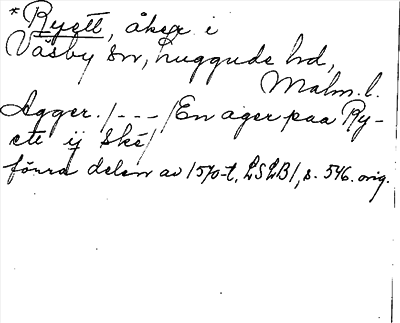 *Ryett, åker i
Väsby sn, Luggude hd,
Malm. l.
Agger. /---/ En ager paa Ry-
ett ij Ske/
förra delen av 1570-t, LSLB1, s. 546. orig.